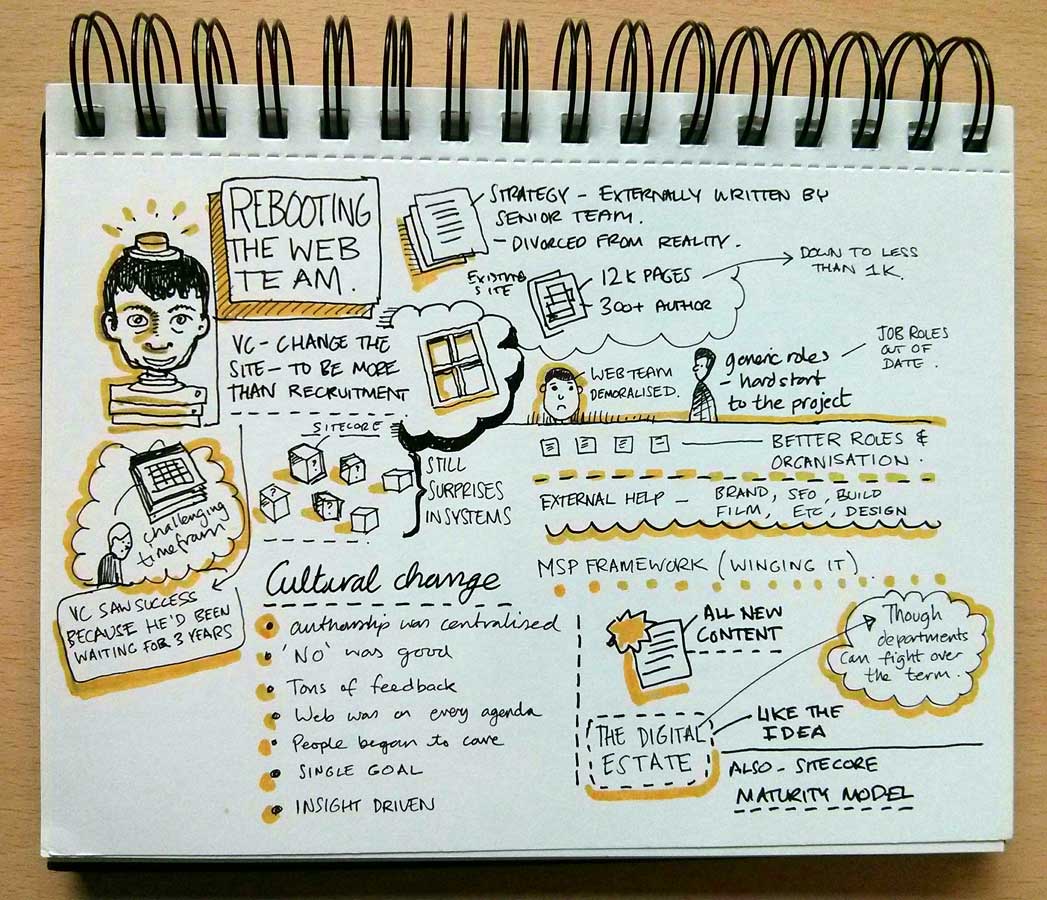 REBOOTING
THE WEB
TEAM.
STRATEGY - EXTERNALLY WRITTEN BY
SENIOR TEAM.
- DIVORCED FROM REALITY.
EXISTING
SITE
12K PAGES
300+ AUTHOR
DOWN TO LESS
THAN 1K.
VC - CHANGE THE
SITE - TO BE MORE
THAN RECRUITMENT
WEB TEAM
DEMORALISED.
generic roles
- hard start
to the project
JOB ROLES
OUT OF
DATE.
SITECORE
? ? ? ?
STILL
SURPRISES
IN SYSTEMS
BETTER ROLES &
ORGANISATION.
EXTERNAL HELP - BRAND, SEO, BUILD
FILM, ETC, DESIGN
challenging
timefram
VC SAW SUCCESS
BECAUSE HE'D BEEN
WAITING FOR 3 YEARS
MSP FRAMEWORK (WINGING IT).
Cultural change
authorship was centralised
'NO' was good
Tons of feedback
Web was on every agenda
People began to care
SINGLE GOAL
INSIGHT DRIVEN
ALL NEW
CONTENT
Though
departments
can fight over
the term.
THE DIGITAL
ESTATE
LIKE THE
IDEA
ALSO - SITECORE
MATURITY MODEL